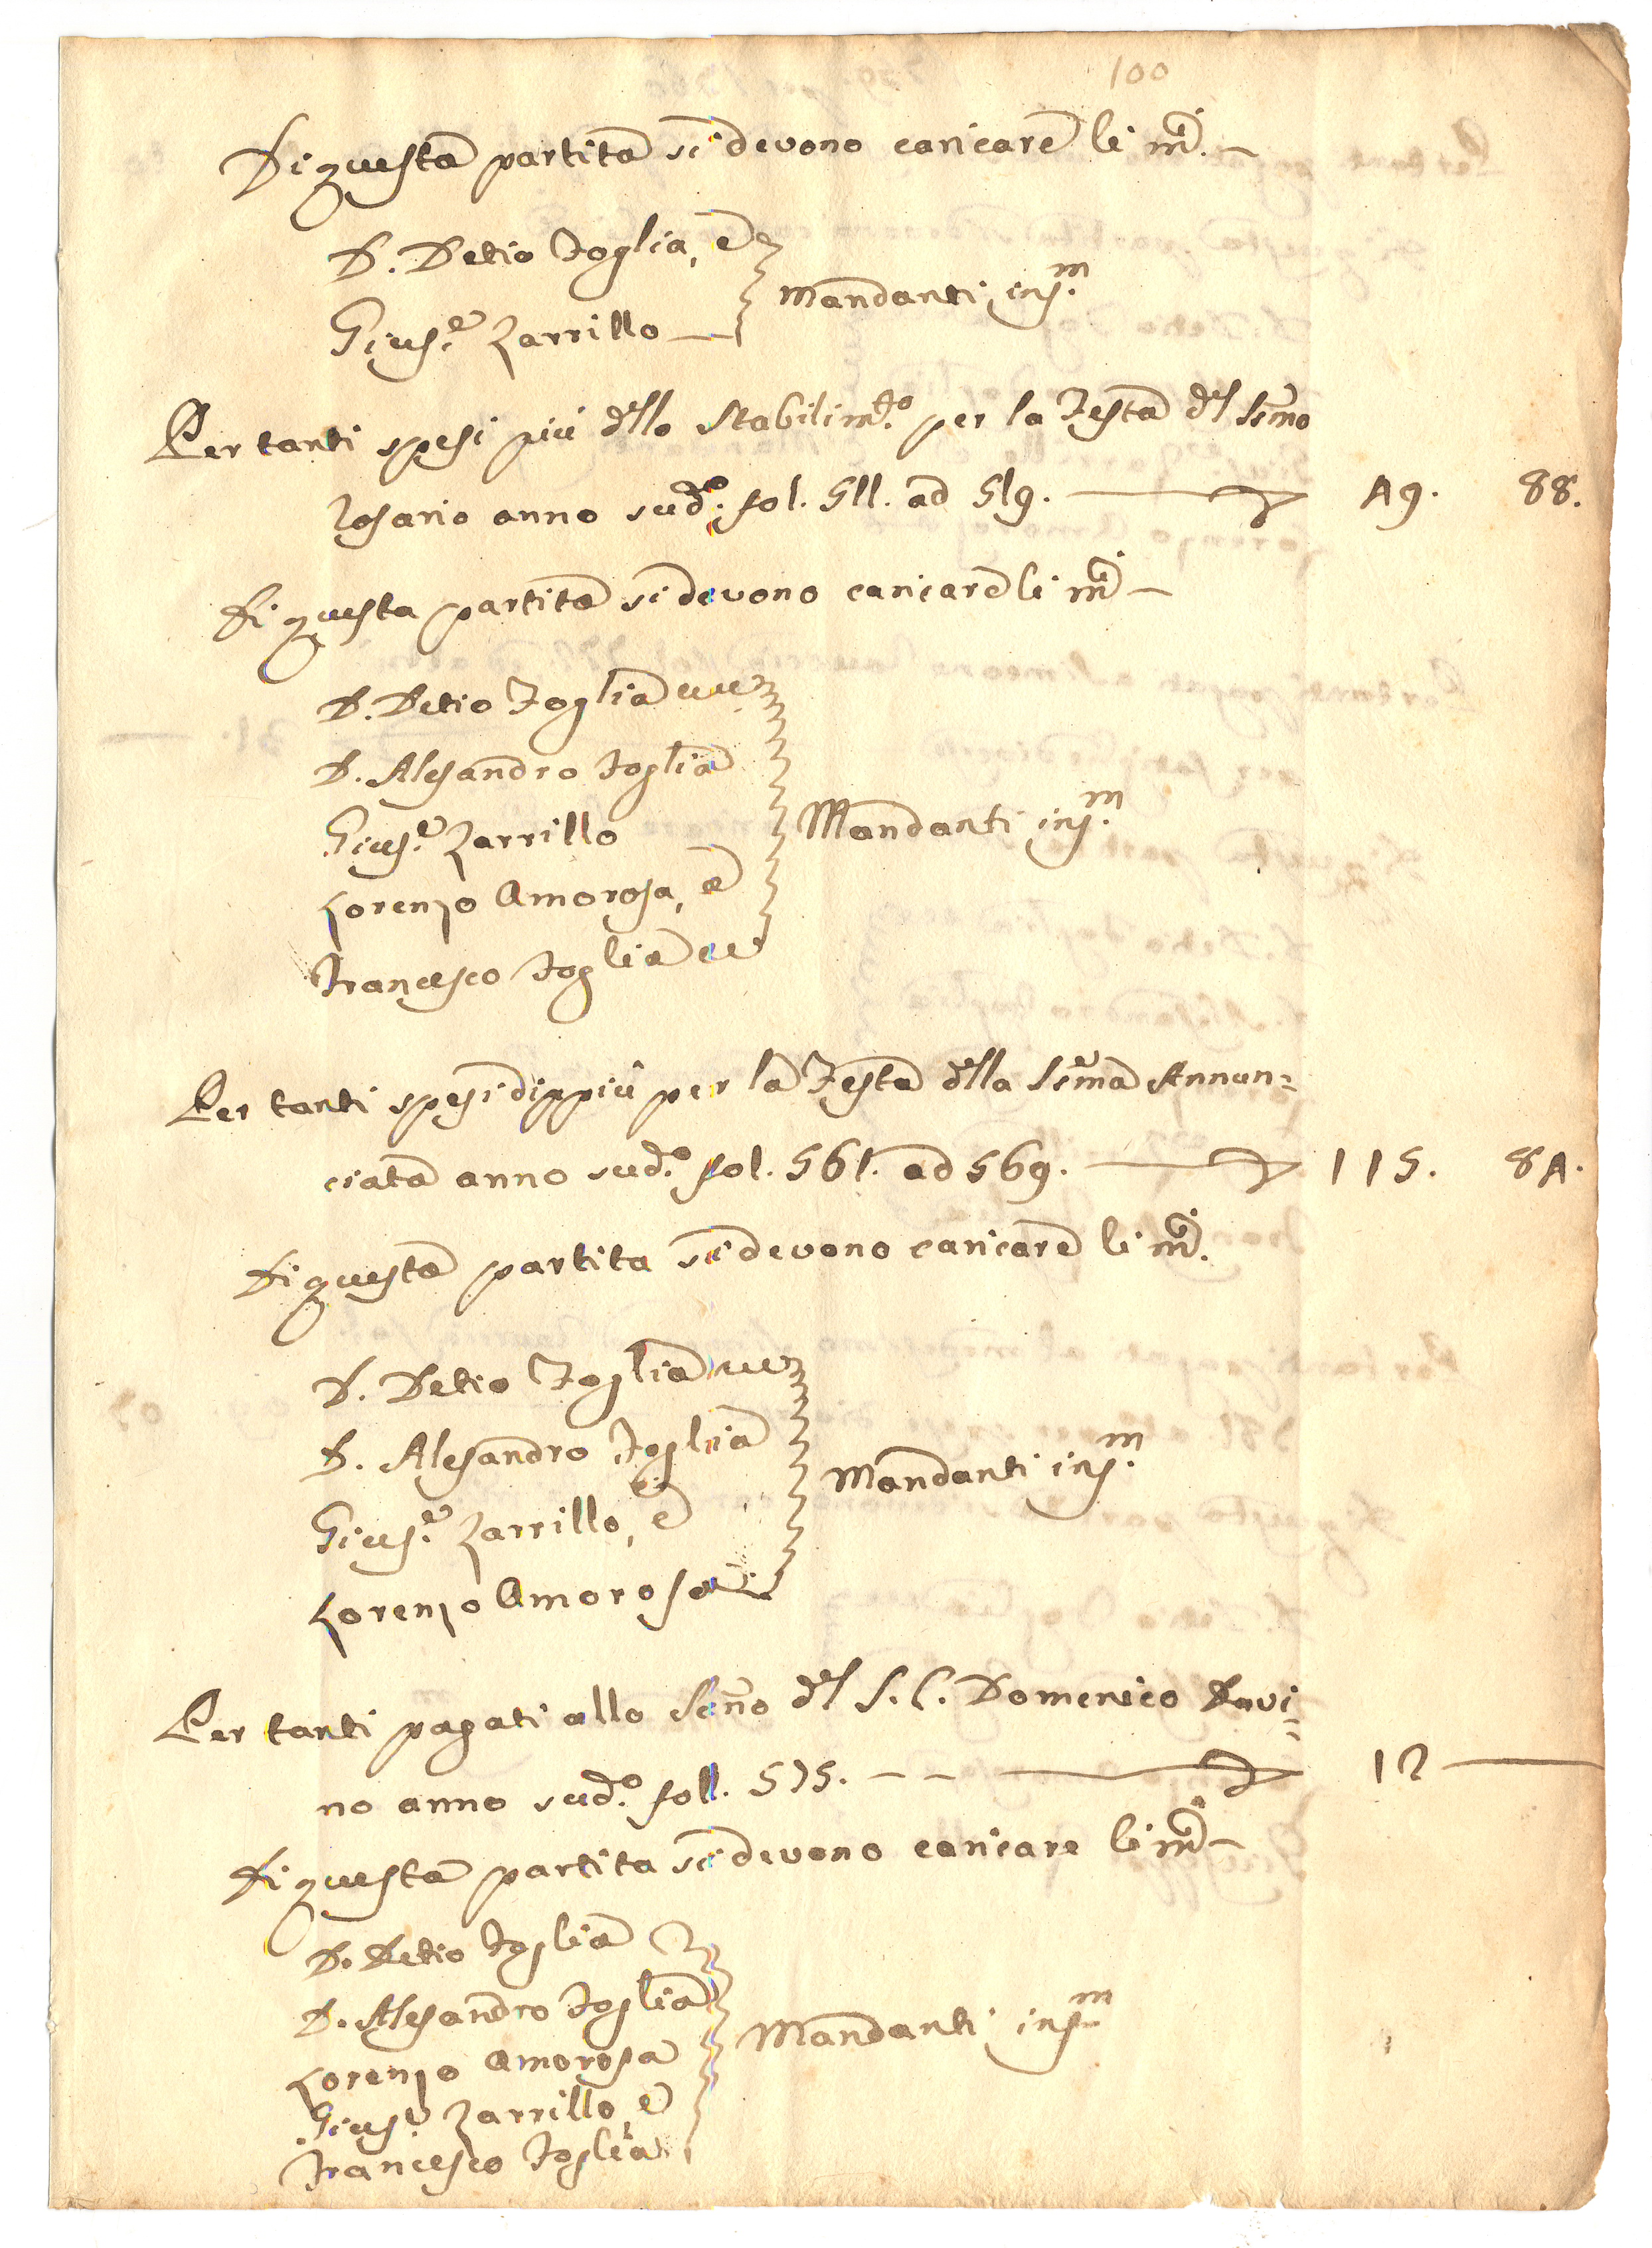 100
Di questa partita si devono caricare li m.ci
D. Detio Foglia, e
Gius.e Zarrillo
Mandanti ins.m
Per tanti spesi più dello stabilim.to per la Festa del SS.mo
Rosario anno sud.o fol. 511. ad 519. 49. 88.
Di questa partita si devono caricare li m.ci
D. Detio Foglia
D. Alesandro Foglia
Gius.e Zarrillo
Lorenzo Amorosa, e
Francesco Foglia
Mandanti ins.m
Per tanti spesi dippiù per la Festa della SS.ma Annun=
ciata anno sud.o fol. 561. ad 569. 115. 84.
Di questa partita si devono caricare li m.ci
D. Detio Foglia
D. Alesandro Foglia
Gius.e Zarrillo, e
Lorenzo Amorosa
Mandanti ins.m
Per tanti pagati allo del S. C. Domenico Davi=
no anno sud.o foll. 575. 12
Di questa partita si devono caricare li m.ci
D. Detio Foglia
D. Alesandro Foglia
Lorenzo Amorosa
Gius.e Zarrillo, e
Francesco Foglia
Mandanti ins.m